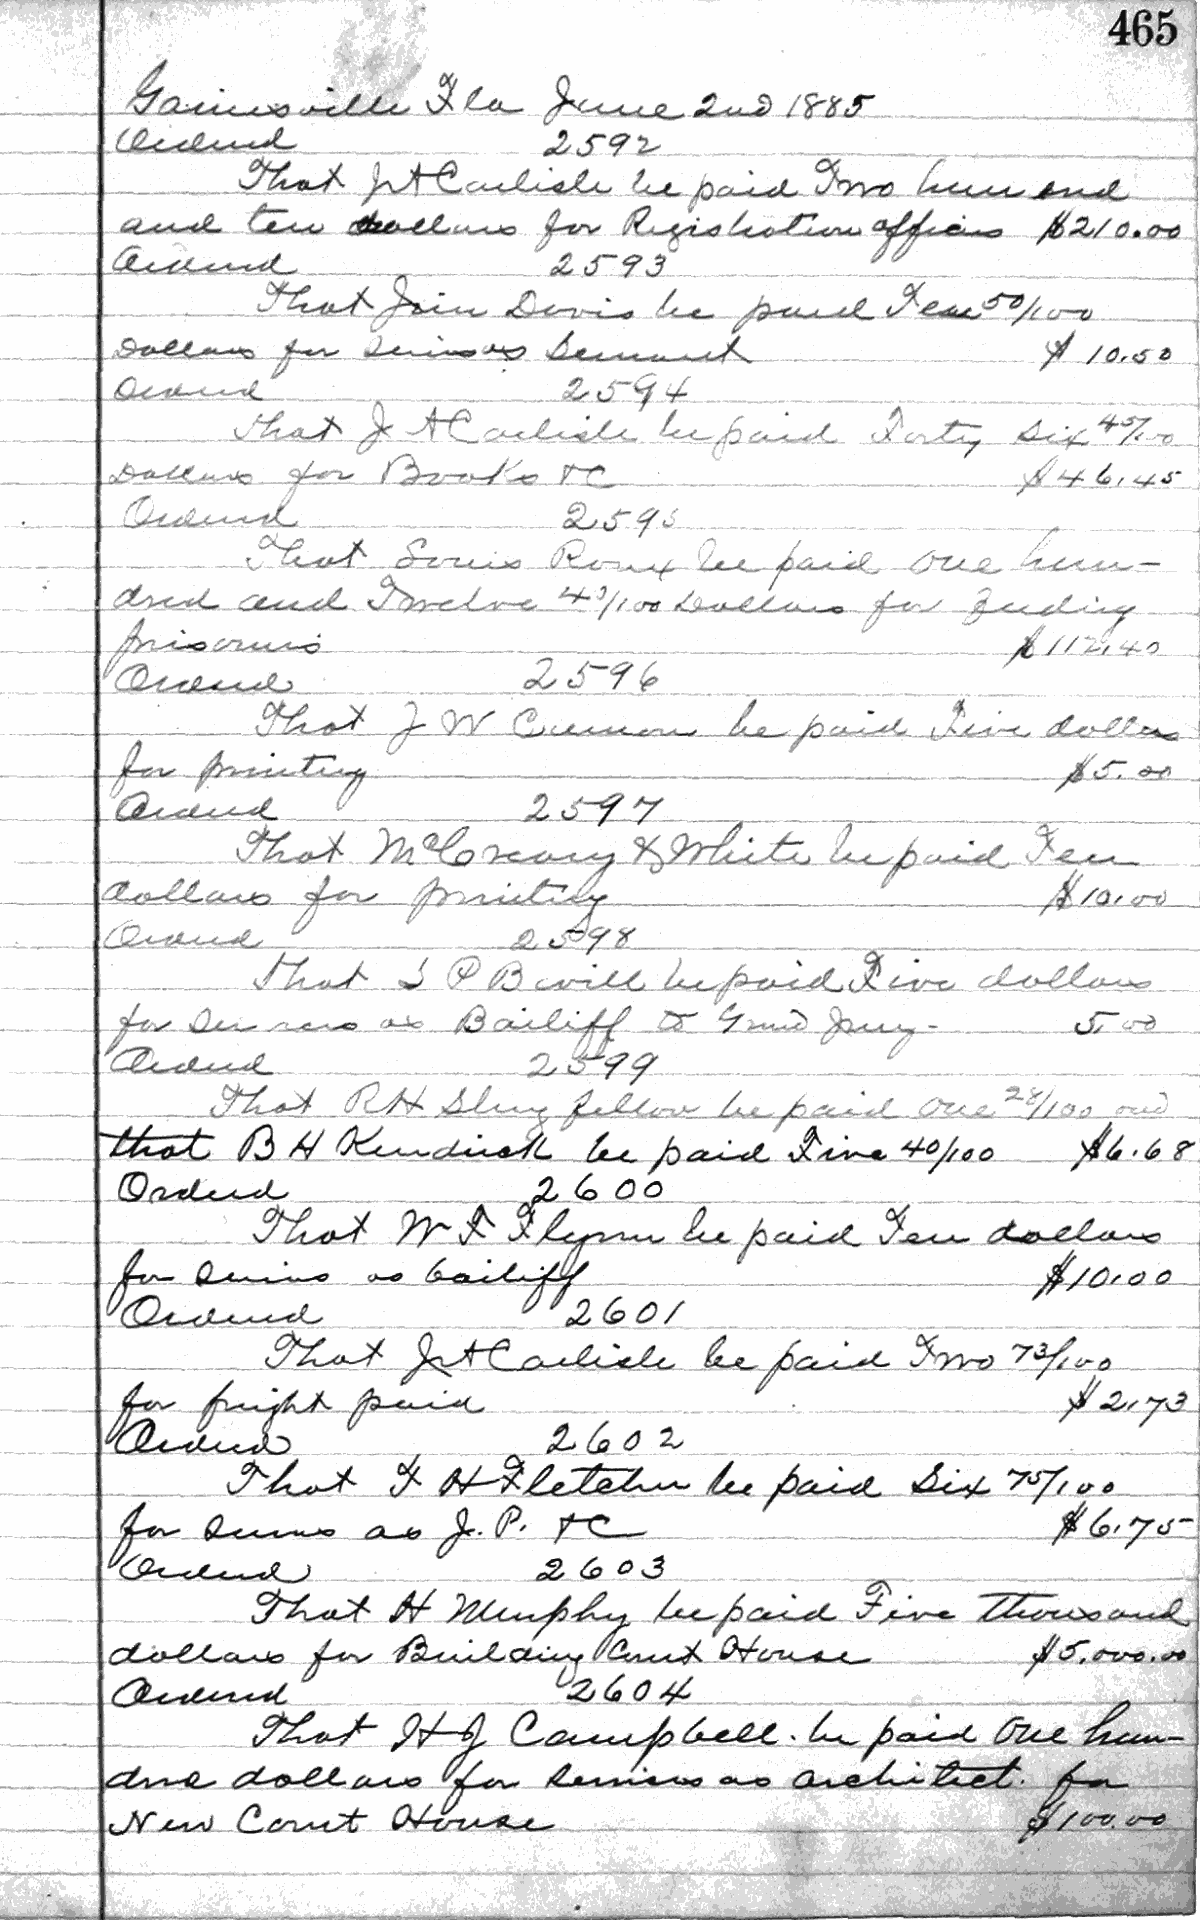 465
Gainesville Fla June 2nd 1885
Ordered 2592
That J A Carlisle be paid Two hun end
and ten dollars for Registration officers $210.00
Ordered 2593
That John Davis be paid Ten 50/100
Dollars for Services $10.50
Ordered 2594
That J A Carlisle be paid Forty Six 45/100
Dollars for Books &C $46.45
Ordered 2595
That Louis Roux be paid One hun-
dred and Twelve 40/100 Dollars for Feeding
prisoners $112.40
Ordered 2596
That J W Cannon be paid Five dollars
for printing $5.00
Ordered 2597
That McCreary & White be paid Ten
dollars for printing $10.00
Ordered 2598
That S P Bevill be paid Five dollars
for Services as Bailiff to Grand Jury- 5.00
Ordered 2599
That R H Slingfellow be paid One 28/100 and
that B H Kendrick be paid Five 40/100 $6.68
Ordered 2600
That W F Flynn be paid Ten dollars
for Services as bailiff $10.00
Ordered 2601
That J A Carlisle be paid Two 73/100
for freight paid $2.73
Ordered 2602
That F H Fletcher be paid Six 75/100
for Services as J. P. &C $6.75
Ordered 2603
That H Murphy be paid Five Thousand
dollars for Building Court House $5,000.00
Ordered 2604
That H J Campbell. be paid One hun-
dred dollars for Services as architect. for
New Court House $100.00